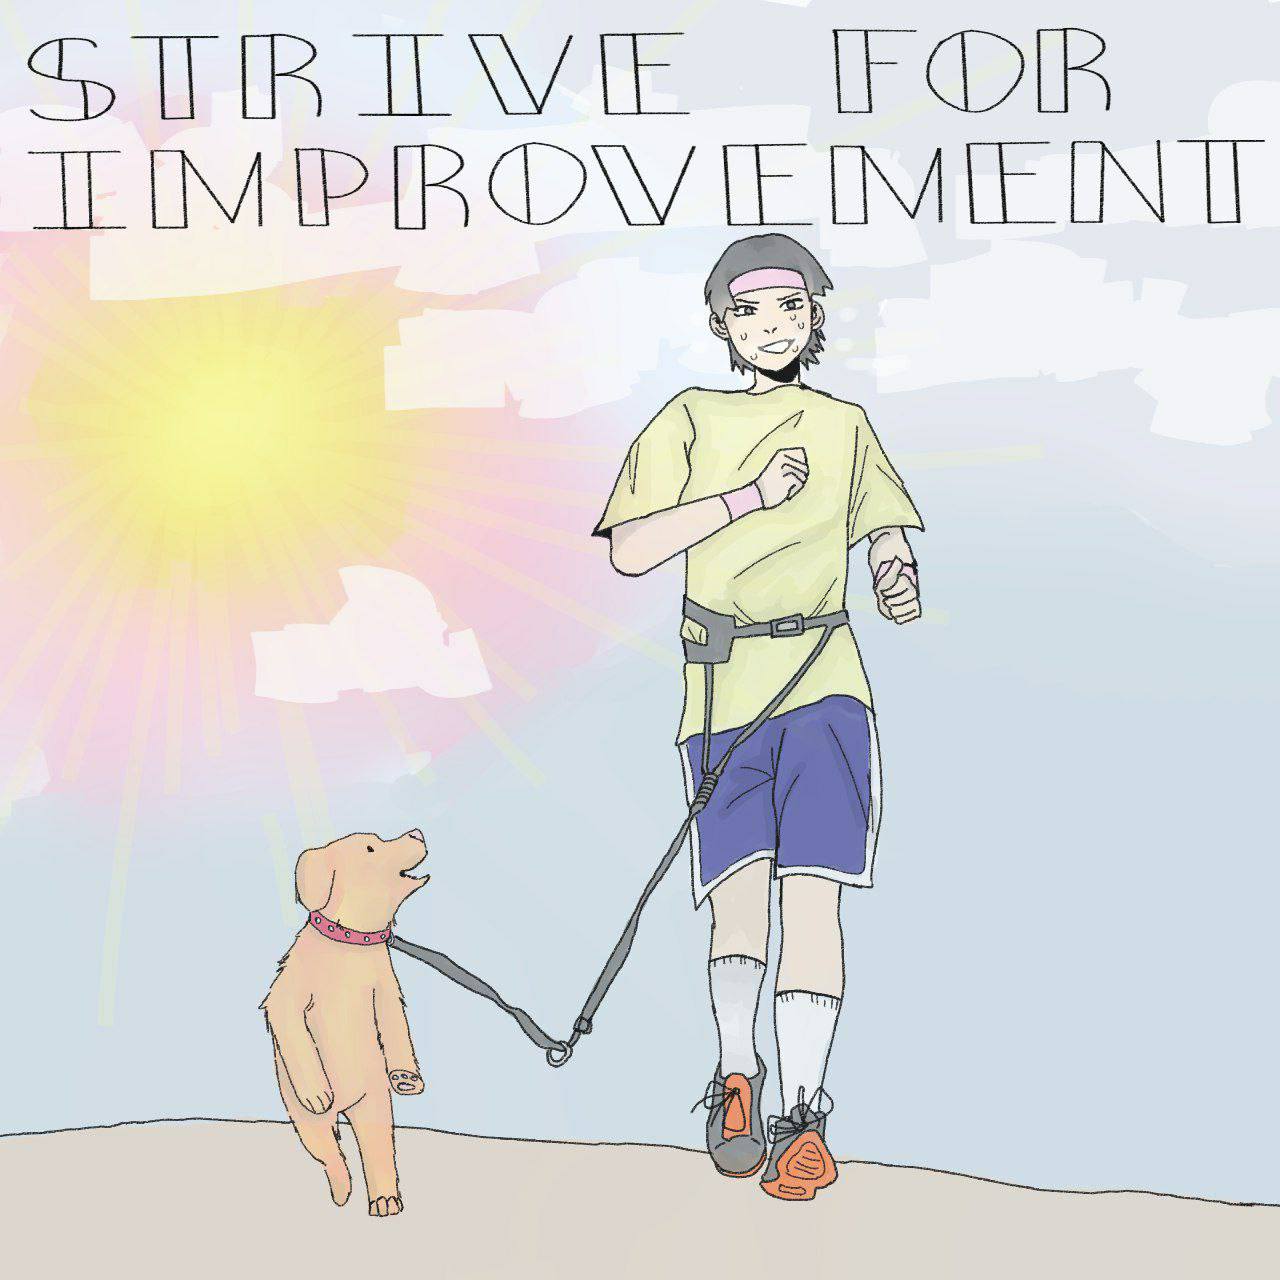 STRIVE FOR
IMPROVEMENT